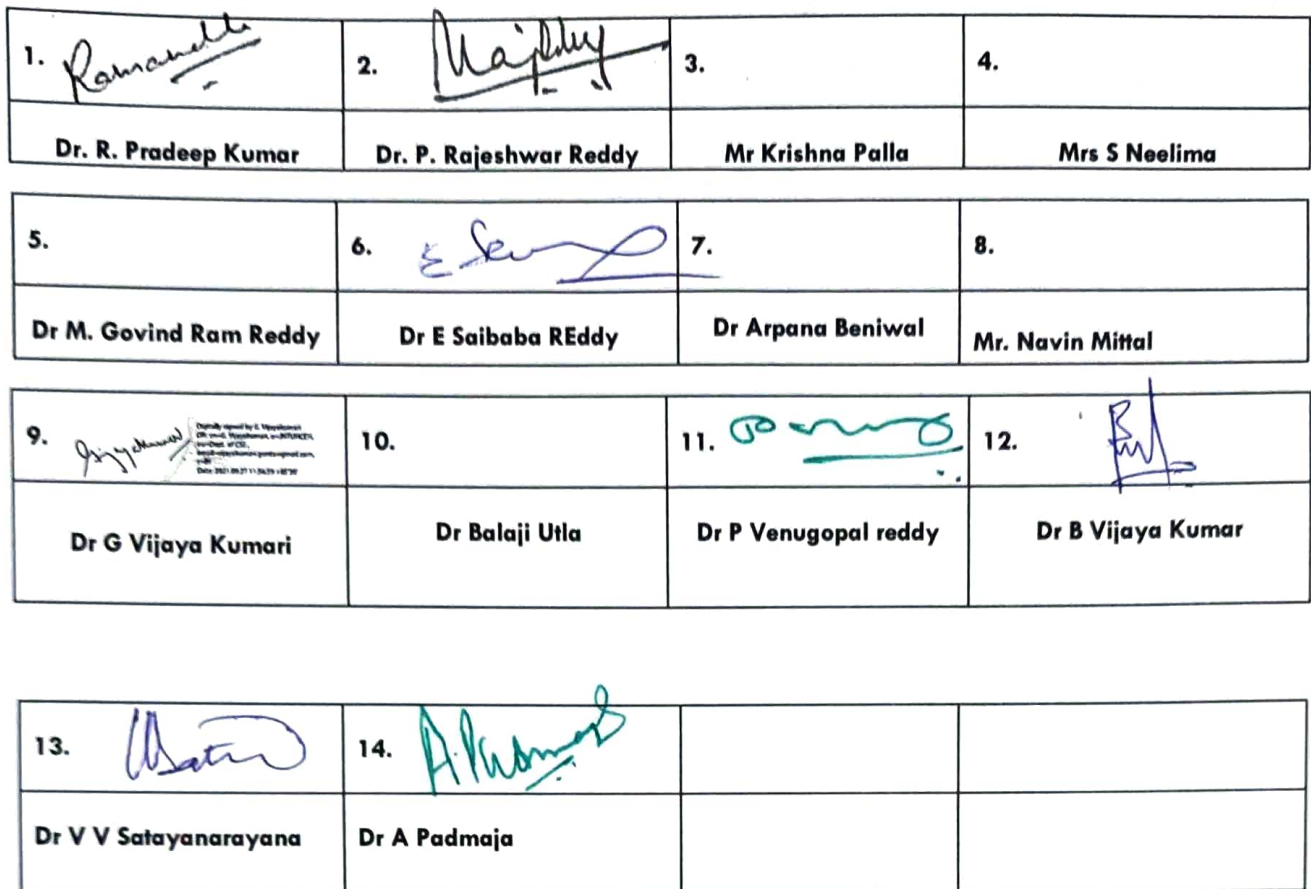 1. 2. 3. 4.
Dr. R. Pradeep Kumar Dr. P. Rajeshwar Reddy Mr Krishna Palla Mrs S Neelima
5. 6. 7. 8.
Dr M. Govind Ram Reddy Dr E Saibaba REddy Dr Arpana Beniwal Mr. Navin Mittal
9. Digitally signed by G. Vijayakumari 10. 11. 12.
Dr G Vijaya Kumari Dr Balaji Utla Dr P Venugopal reddy Dr B Vijaya Kumar
13. 14. A. Padmaja
Dr V V Satayanarayana Dr A Padmaja